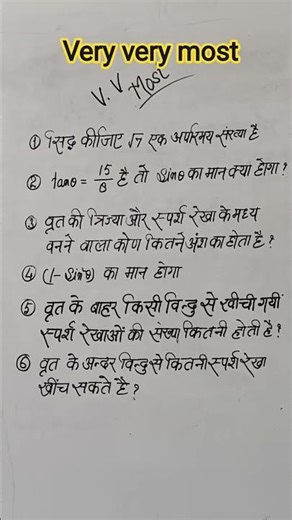 Very very most
V. V Most
① सिद्ध कीजिए √7 एक अपरिमेय संख्या है
② tanθ = 15/8 है तो sinθ का मान क्या होगा ?
③ वृत की त्रिज्या और स्पर्श रेखा के मध्य
बनने वाला कोण कितने अंश का होता है ?
④ (1- sin²θ) का मान होगा
⑤ वृत के बाहर किसी विन्दु से खीची गयीं
स्पर्श रेखाओं की संख्या कितनी होती है ?
⑥ वृत के अन्दर विन्दु से कितनी स्पर्श रेखा
खींच सकते है ?